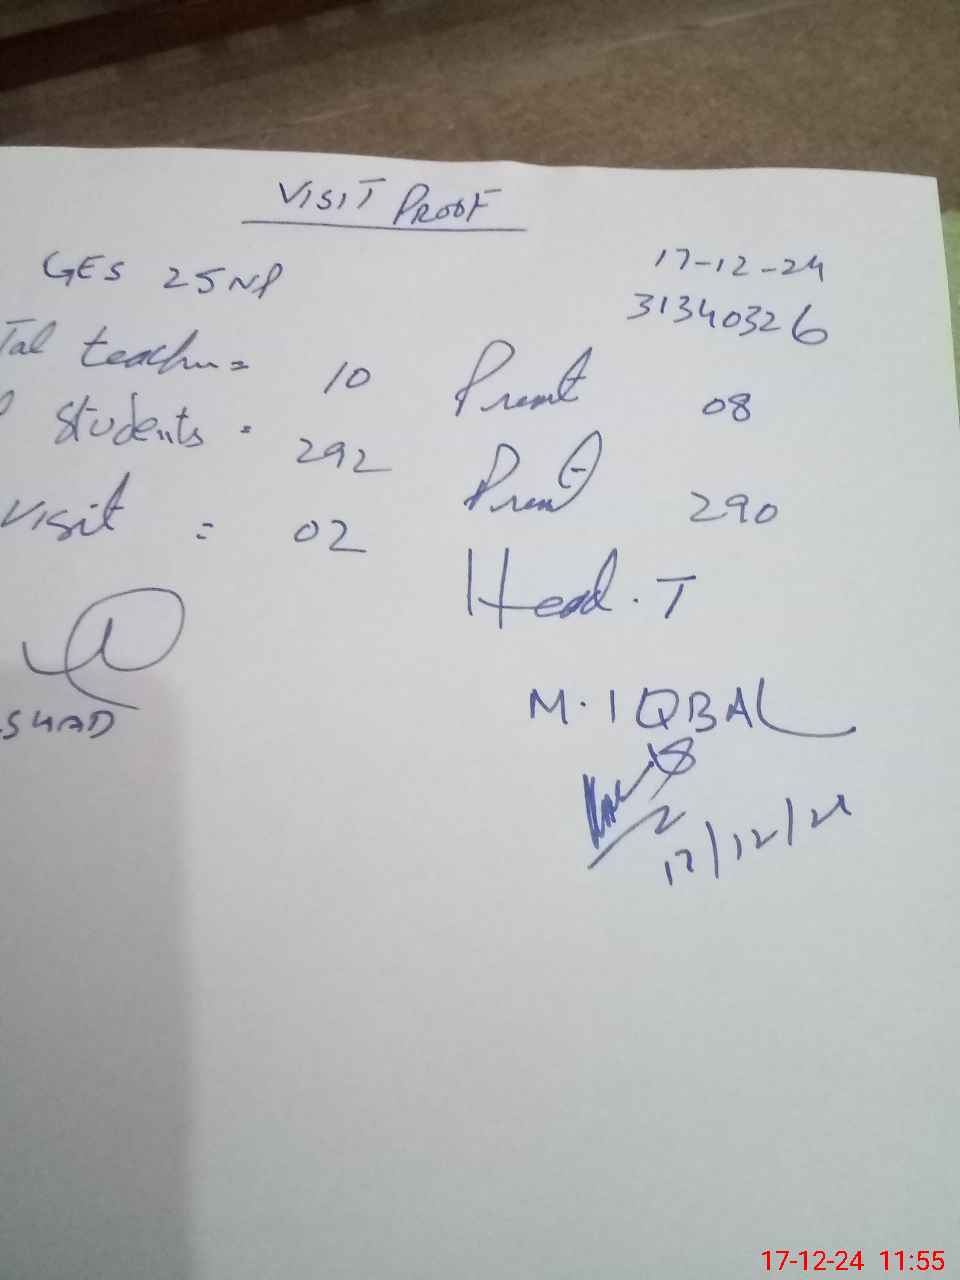 VISIT PROOF
GES 25NP 17-12-24
31340326
Tal teacher = 10 Present 08
students = 292 Present 290
Visit = 02
Head. T
SHAD
M. IQBAL
17/12/24
17-12-24 11:55